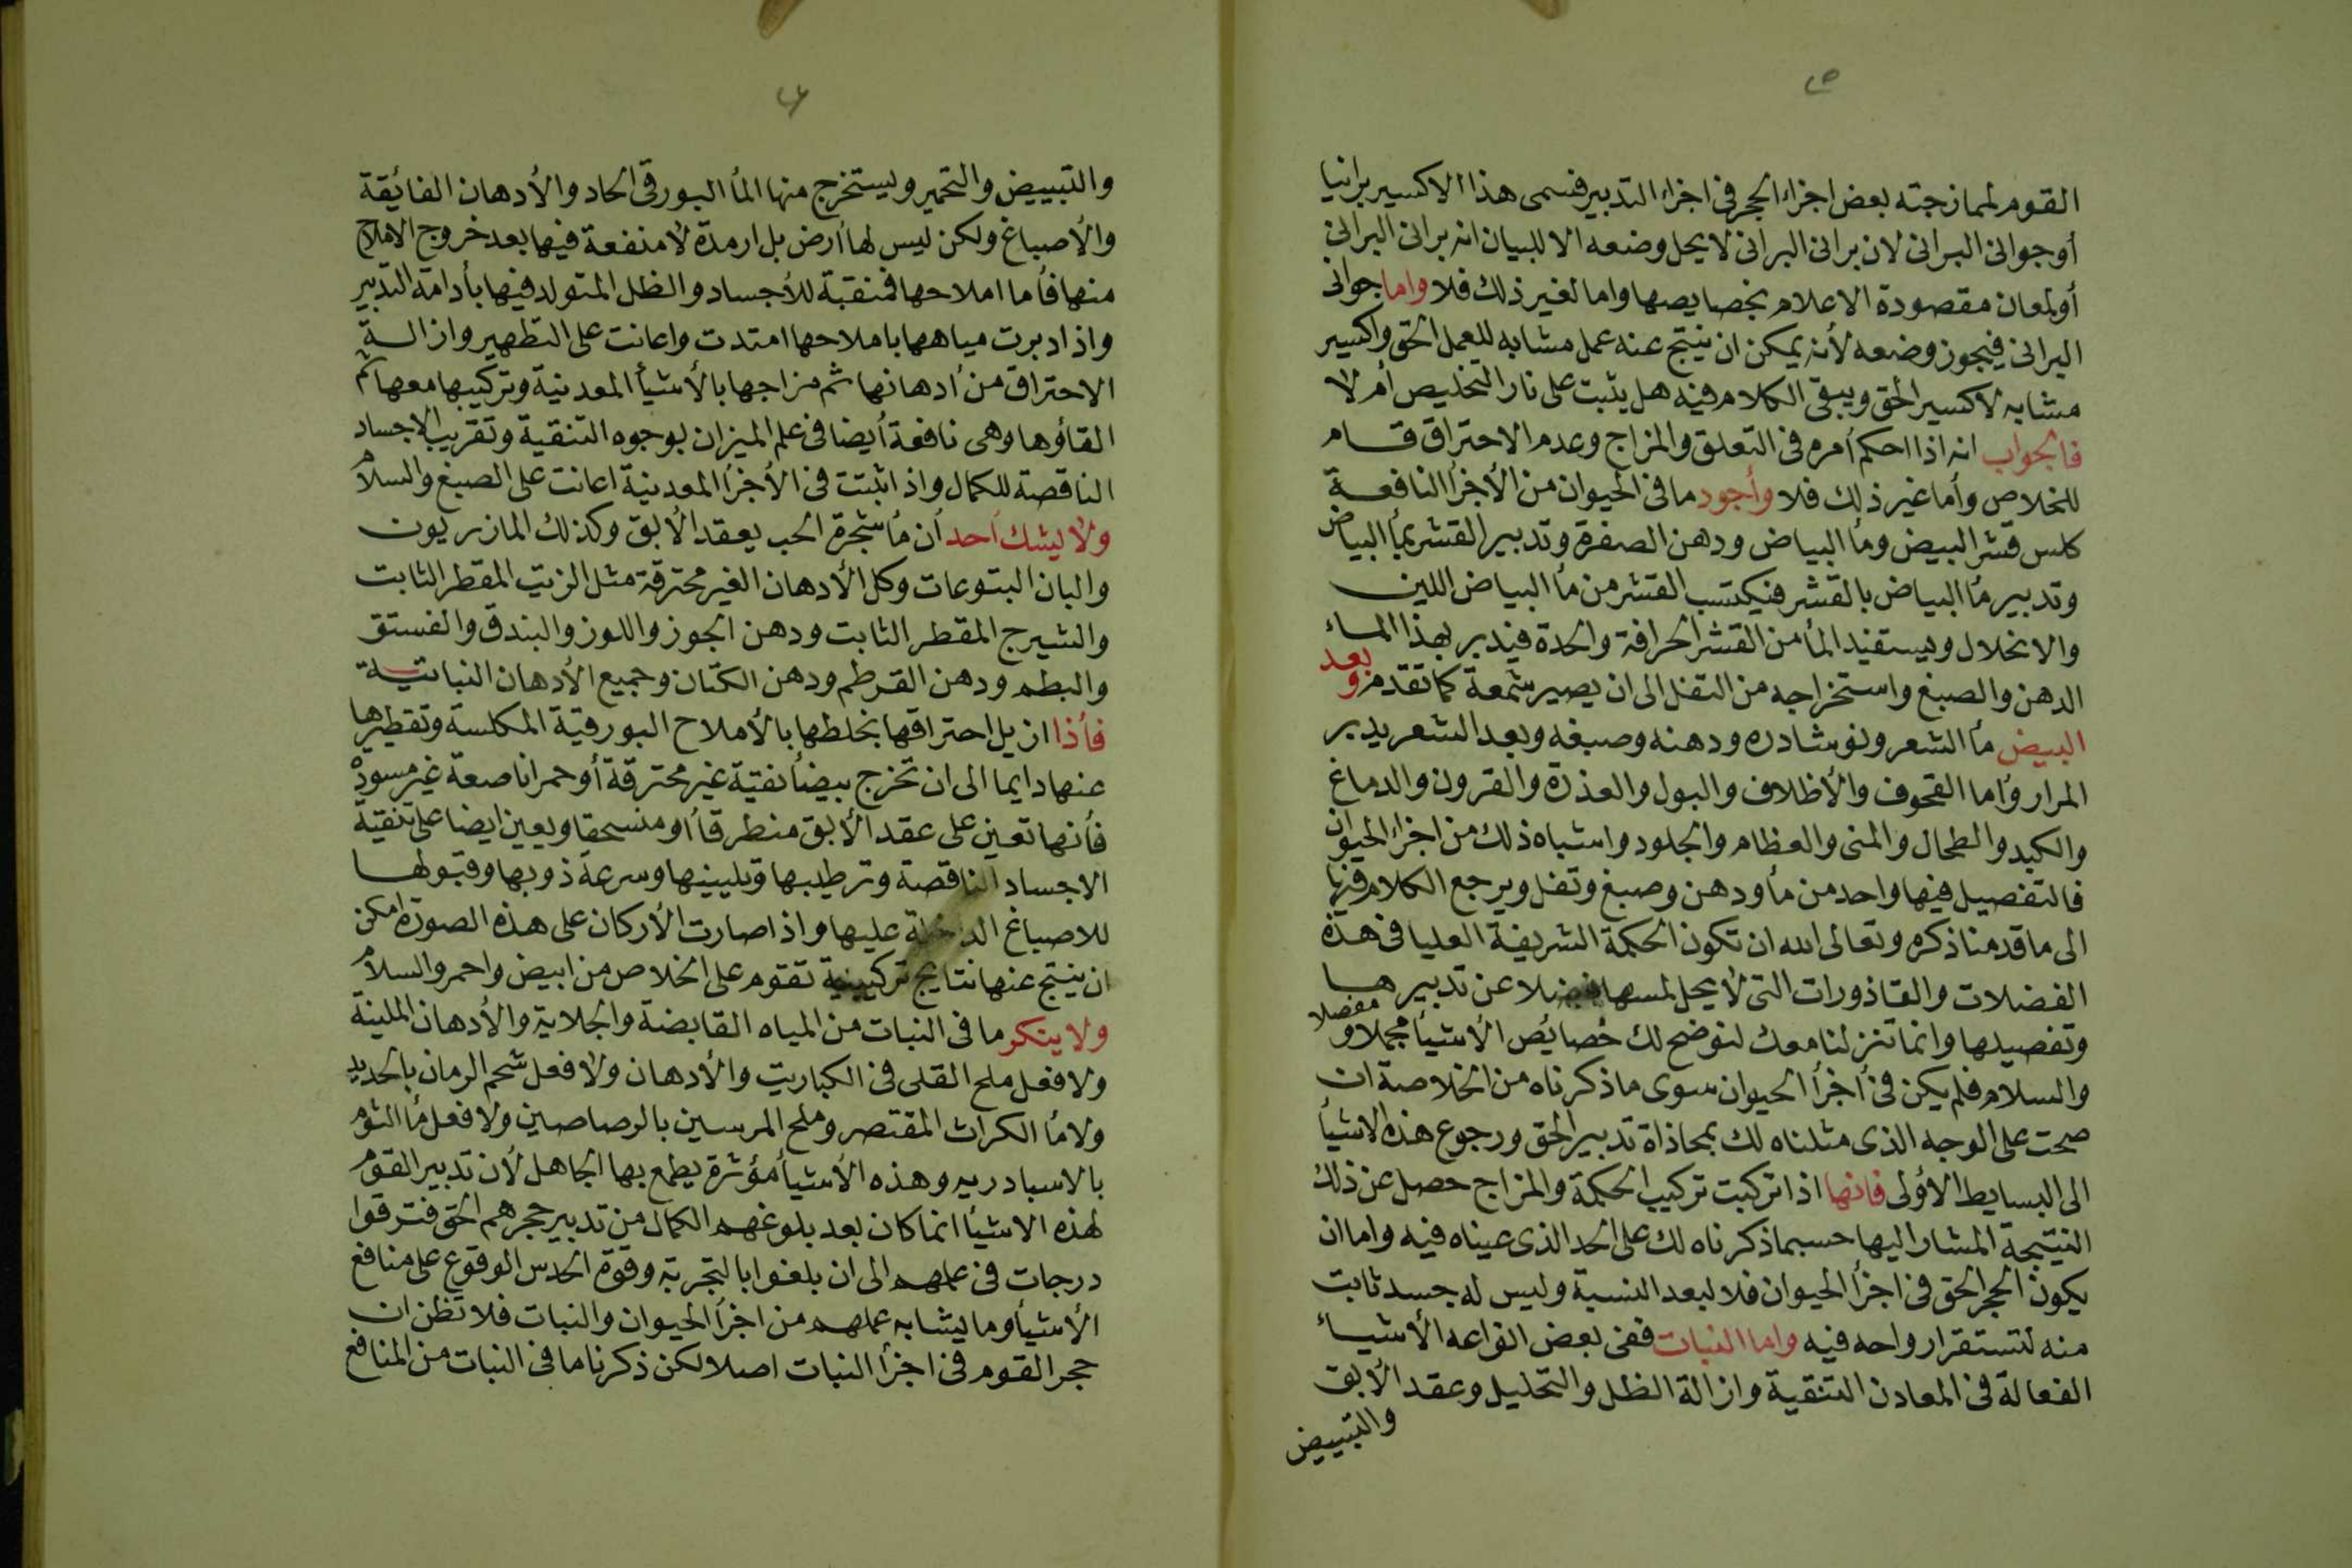 القوم لممازجته بعض اجزاء الحجر فى اجزاء التدبير فسمى هذا الاكسير برانيا
أو جوانى البرانى لان برانى البرانى لا يحل وضعه الا للبيان انه برانى البرانى
أو لمعان مقصودة الاعلام بخصايصها واما لغير ذلك فلا واما جوانى
البرانى فيجوز وضعه لأنه يمكن ان ينتج عنه عمل مشابه للعمل الحق واكسير
مشابه لاكسير الحق ويبقى الكلام فيه هل يثبت على نار التخليص أم لا
فالجواب انه اذا احكم أمره فى التعلق والمزاج وعدم الاحتراق قام
للخلاص وأما غير ذلك فلا وأجود ما فى الحيوان من الأجزأ النافعة
كلس قشر البيض ومأ البياض ودهن الصفرة وتدبير القشر بمأ البياض
وتدبير مأ البياض بالقشر فيكتسب القشر من مأ البياض اللين
والانحلال ويستفيد المأ من القشر الحرافة والحدة فيدبر بهذا الماء
الدهن والصبغ واستخراجه من التفل الى ان يصير شمعة كما تقدم وبعد
البيض مأ الشعر ونوشادره ودهنه وصبغه وبعد الشعر يدبر
المرار وأما القحوف والأظلاف والبول والعذرة والقرون والدماغ
والكبد والطحال والمنى والعظام والجلود واشباه ذلك من اجزاء الحيوان
فالتفصيل فيها واحد من مأ ودهن وصبغ وتفل ويرجع الكلام فيها
الى ما قدمنا ذكره وتعالى الله ان تكون الحكمة الشريفة العليا فى هذه
الفضلات والقاذورات التى لا يحل لمسها فضلا عن تدبيرها
وتفصيلها وانما تنزلنا معك لنوضح لك خصايص الأشيأ مجملا ومفصلا
والسلام فلم يكن فى أجزأ الحيوان سوى ما ذكرناه من الخلاصة ان
صحت على الوجه الذى مثلناه لك بمحاذاة تدبير الحق ورجوع هذه الاشيأ
الى البسايط الأولى فانها اذا تركبت تركيب الحكمة والمزاج حصل عن ذلك
النتيجة المشار اليها حسبما ذكرناه لك على الحد الذى عيناه فيه واما ان
يكون الحجر الحق فى اجزأ الحيوان فلا لبعد النسبة وليس له جسد ثابت
منه لتستقر ارواحه فيه واما النبات ففى بعض انواعه الأشياء
الفعالة فى المعادن التنقية وازالة الظل والتحليل وعقد الأبق
والتبييض
والتبييض والتحمير ويستخرج منها المأ البورقى الحاد والأدهان الفائقة
والأصباغ ولكن ليس لها أرض بل ارمدة لا منفعة فيها بعد خروج الاملاح
منها فأما املاحها فمنقبة للأجساد والظل المتولد فيها بأدامة التدبير
واذا دبرت مياهها باملاحها امتدت واعانت على التطهير وازالة
الاحتراق من أدهانها ثم مزاجها بالأشيأ المعدنية وتركيبها معها ثم
القاؤها وهى نافعة أيضا فى علم الميزان لوجوه التنقية وتقريب الاجساد
الناقصة للكمال واذا ثبتت فى الأجزأ المعدنية اعانت على الصبغ والسلام
ولا يشك أحد أن مأ شجرة الحب يعقد الأبق وكذلك المازريون
والبان اليتوعات وكل الأدهان الغير محترقة مثل الزيت المقطر الثابت
والشيرج المقطر الثابت ودهن الجوز واللوز والبندق والفستق
والبطم ودهن القرطم ودهن الكتان وجميع الأدهان النباتية
فأذا ازيل احتراقها بخلطها بالأملاح البورقية المكلسة وتقطيرها
عنها دايما الى ان تخرج بيضأ نقية غير محترقة أو حمرا ناصعة غير مسودة
فأنها تعين على عقد الأبق منطرقا أو منسحقا ويعين ايضا على تنقية
الاجساد الناقصة وترطيبها وتليينها وسرعة ذوبها وقبولها
للاصباغ الداخلة عليها واذا صارت الأركان على هذه الصورة امكن
ان ينتج عنها نتايج تركيبية تقوم على الخلاص من ابيض واحمر والسلام
ولا ينكر ما فى النبات من المياه القابضة والجلاية والأدهان الملينة
ولا فعل ملح القلى فى الكباريت والأدهان ولا فعل شحم الرمان بالحديد
ولا مأ الكراث المقتصر وملح المرسين بالرصاصين ولا فعل مأ الثوم
بالاسبادريه وهذه الأشيأ مؤثرة يطمع بها الجاهل لأن تدبير القوم
لهذه الاشيأ انما كان بعد بلوغهم الكمال من تدبير حجرهم الحق فترقوا
درجات فى عملهم الى ان بلغوا بالتجربة وقوة الحدس الوقوع على منافع
الأشيأ وما يشابه عملهم من اجزأ الحيوان والنبات فلا تظن ان
حجر القوم فى اجزأ النبات اصلا لكن ذكرنا ما فى النبات من المنافع